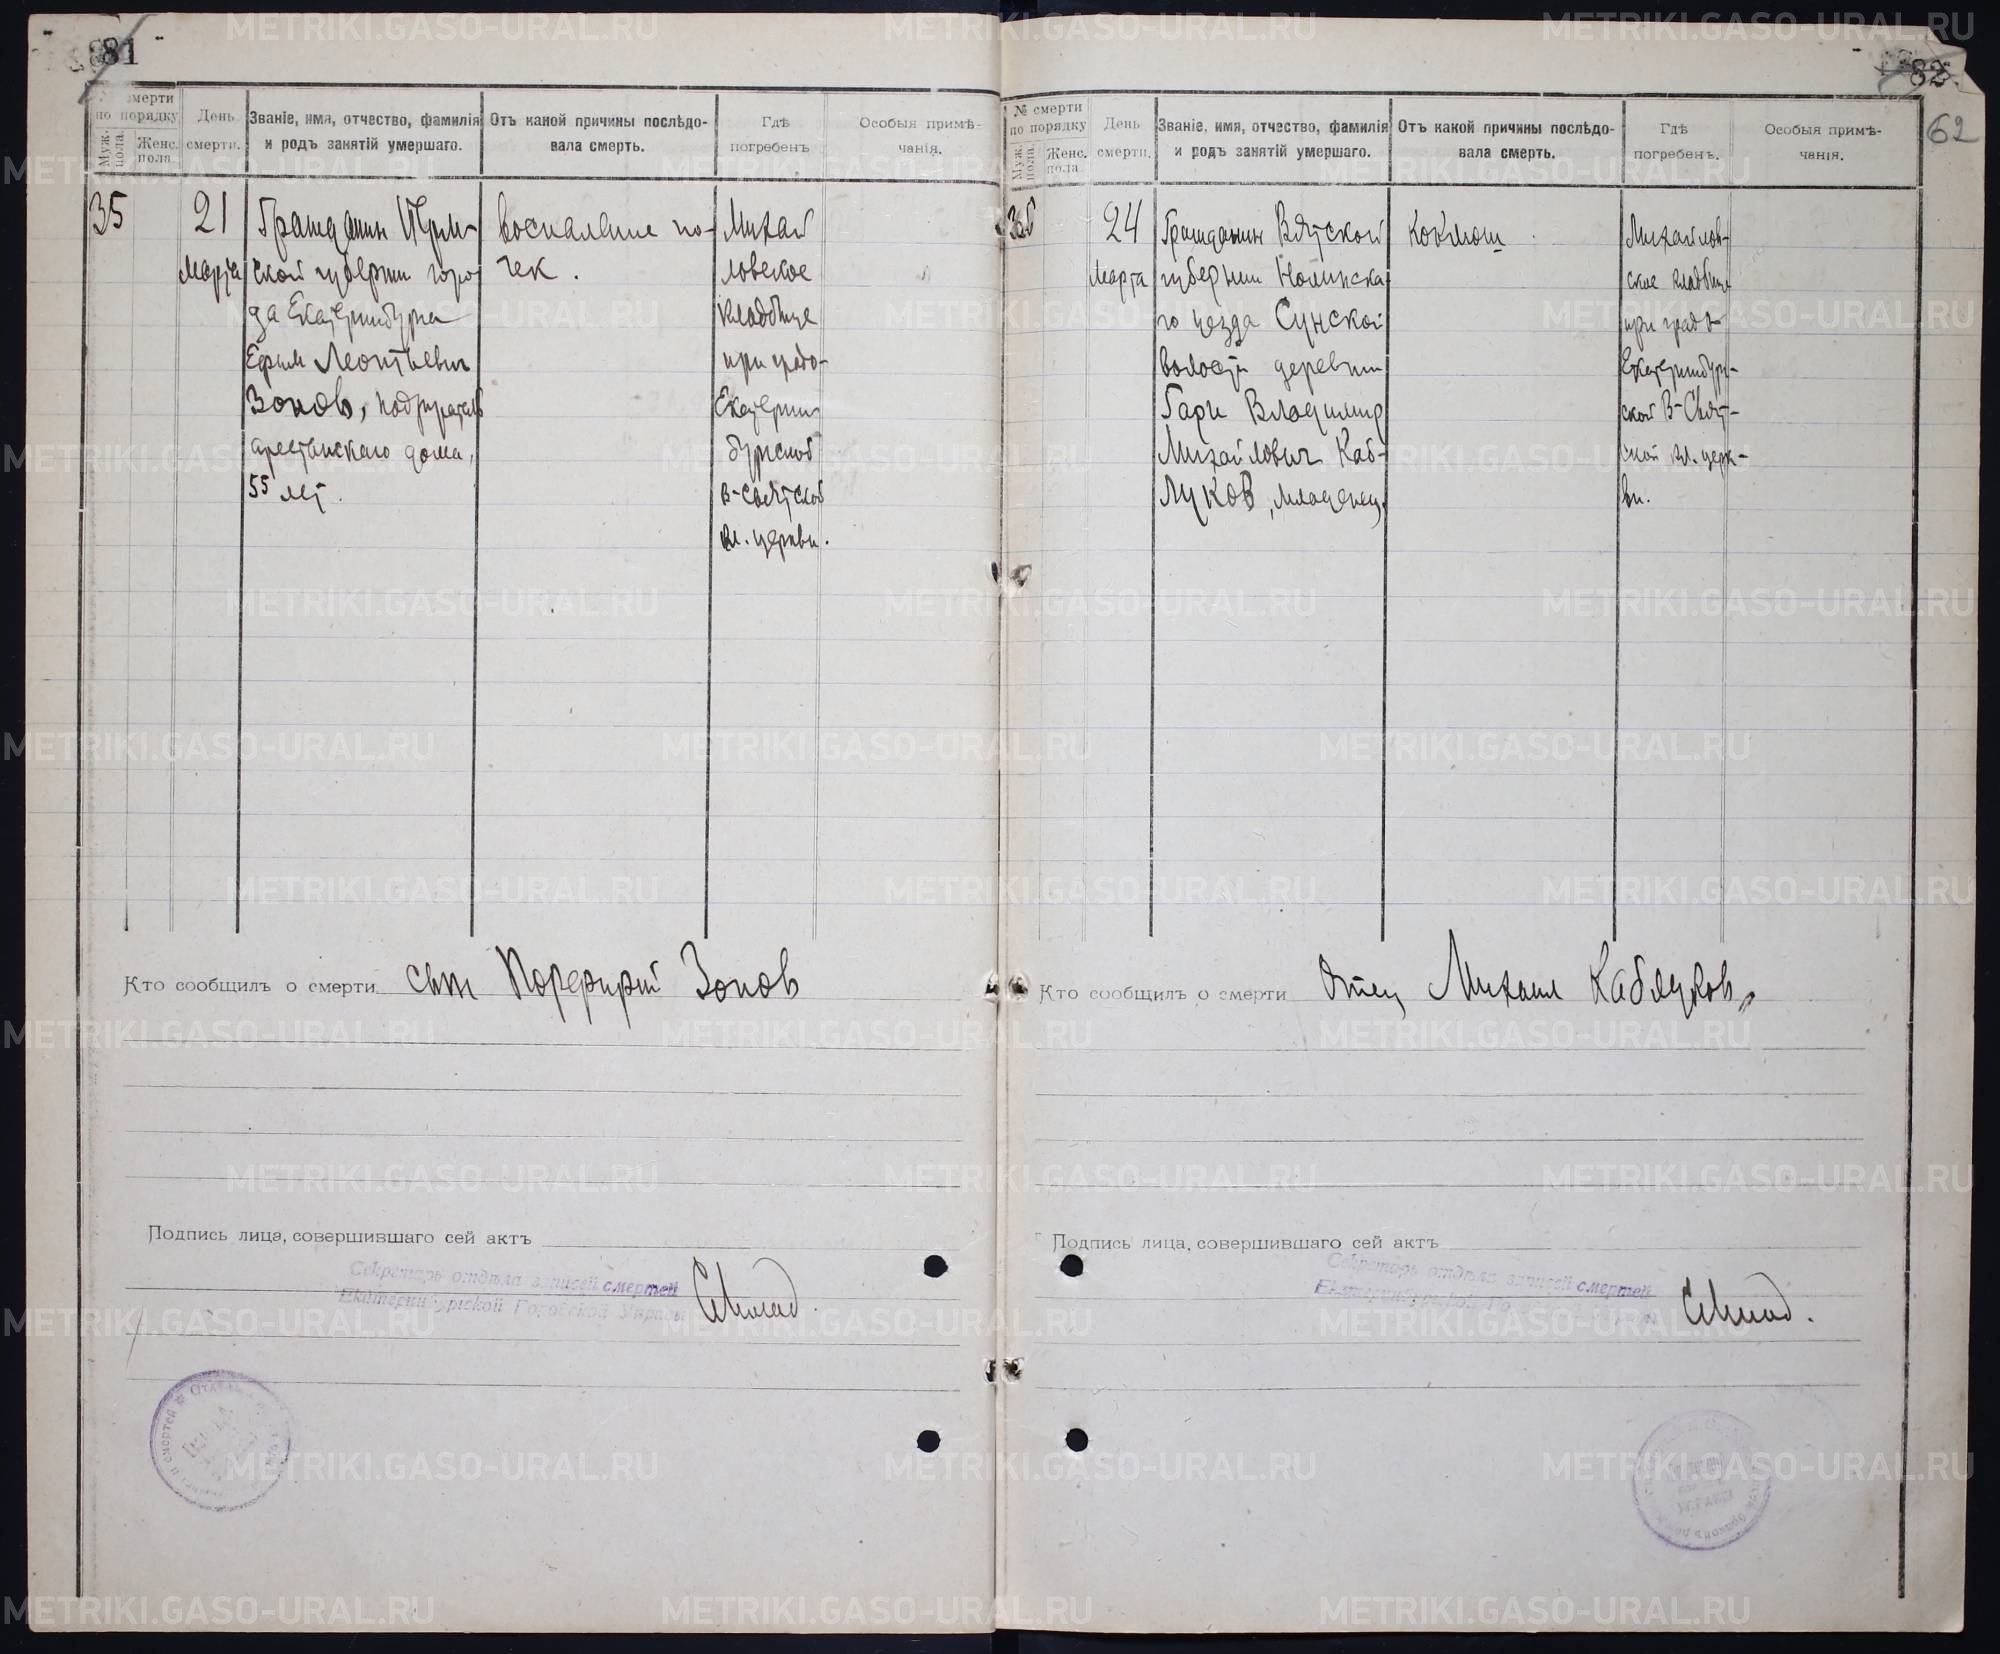 81
№ смерти
по порядку
Муж. пола.
Женс. пола
День смерти.
Званіе, имя, отчество, фамилія
и родъ занятій умершаго.
Отъ какой причины послѣдо-
вала смерть.
Гдѣ
погребенъ
Особыя примѣ-
чанія.
35
21
Марта
Гражданин Перм-
ской губернии горо
да Екатеринбурга
Ефим Леонтьевич
Зонов, надзиратель
арестанскаго дома,
55 лет.
воспаление по-
чек.
Михай
ловское
кладбище
при градо-
Екатерин
бургской
В-Святской
кл. церкви.
Кто сообщилъ о смерти сын Порфирий Зонов
Подпись лица, совершившаго сей актъ
Секретарь отдѣла записей смертей
Екатеринбургской Городской Управы
82
62
№ смерти
по порядку
Муж. пола.
Женс. пола
День
смерти.
Званіе, имя, отчество, фамилія
и родъ занятій умершаго.
Отъ какой причины послѣдо-
вала смерть.
Гдѣ
погребенъ.
Особыя примѣ-
чанія.
36
24
Марта
Гражданин Вятской
губернии Нолинска
го уезда Сунской
волости деревни
Гари Владимир
Михайлович Каб-
луков, младенец.
коклюш
Михайлов-
ское кладбище
при градо
Екатеринбург-
ской В-Свят-
ской кл. церк-
ви.
Кто сообщилъ о смерти Отец Михаил Каблуков
Подпись лица, совершившаго сей актъ
Секретарь отдѣла записей смертей
METRIKI.GASO-URAL.RU